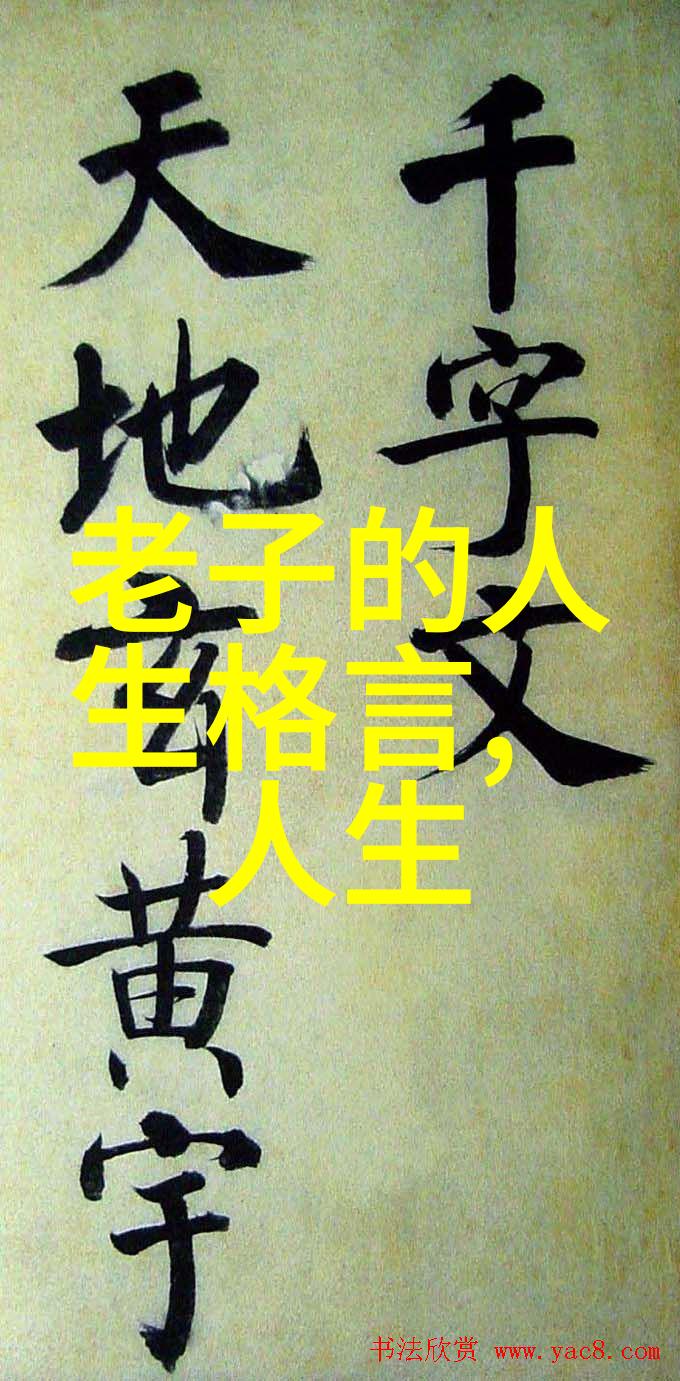 千字文
天地玄黄宇
老子的人
生格言,
人生
书法欣赏 www.yac8.com